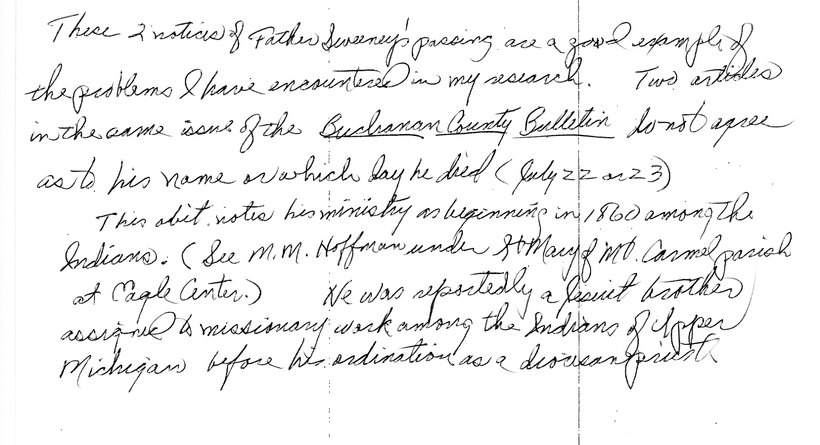 These 2 notices of Father Sweeney's passing are a good example of
the problems I have encountered in my research. Two articles
in the same issue of the Buchanan County Bulletin do not agree
as to his name or which day he died (July 22 or 23)
This obit. notes his ministry as beginning in 1860 among the
Indians. (See M.M. Hoffman under St Mary of Mt. Carmel parish
at Eagle Center.) He was reportedly a Jesuit brother
assigned to missionary work among the Indians of Upper
Michigan before his ordination as a diocesan priest